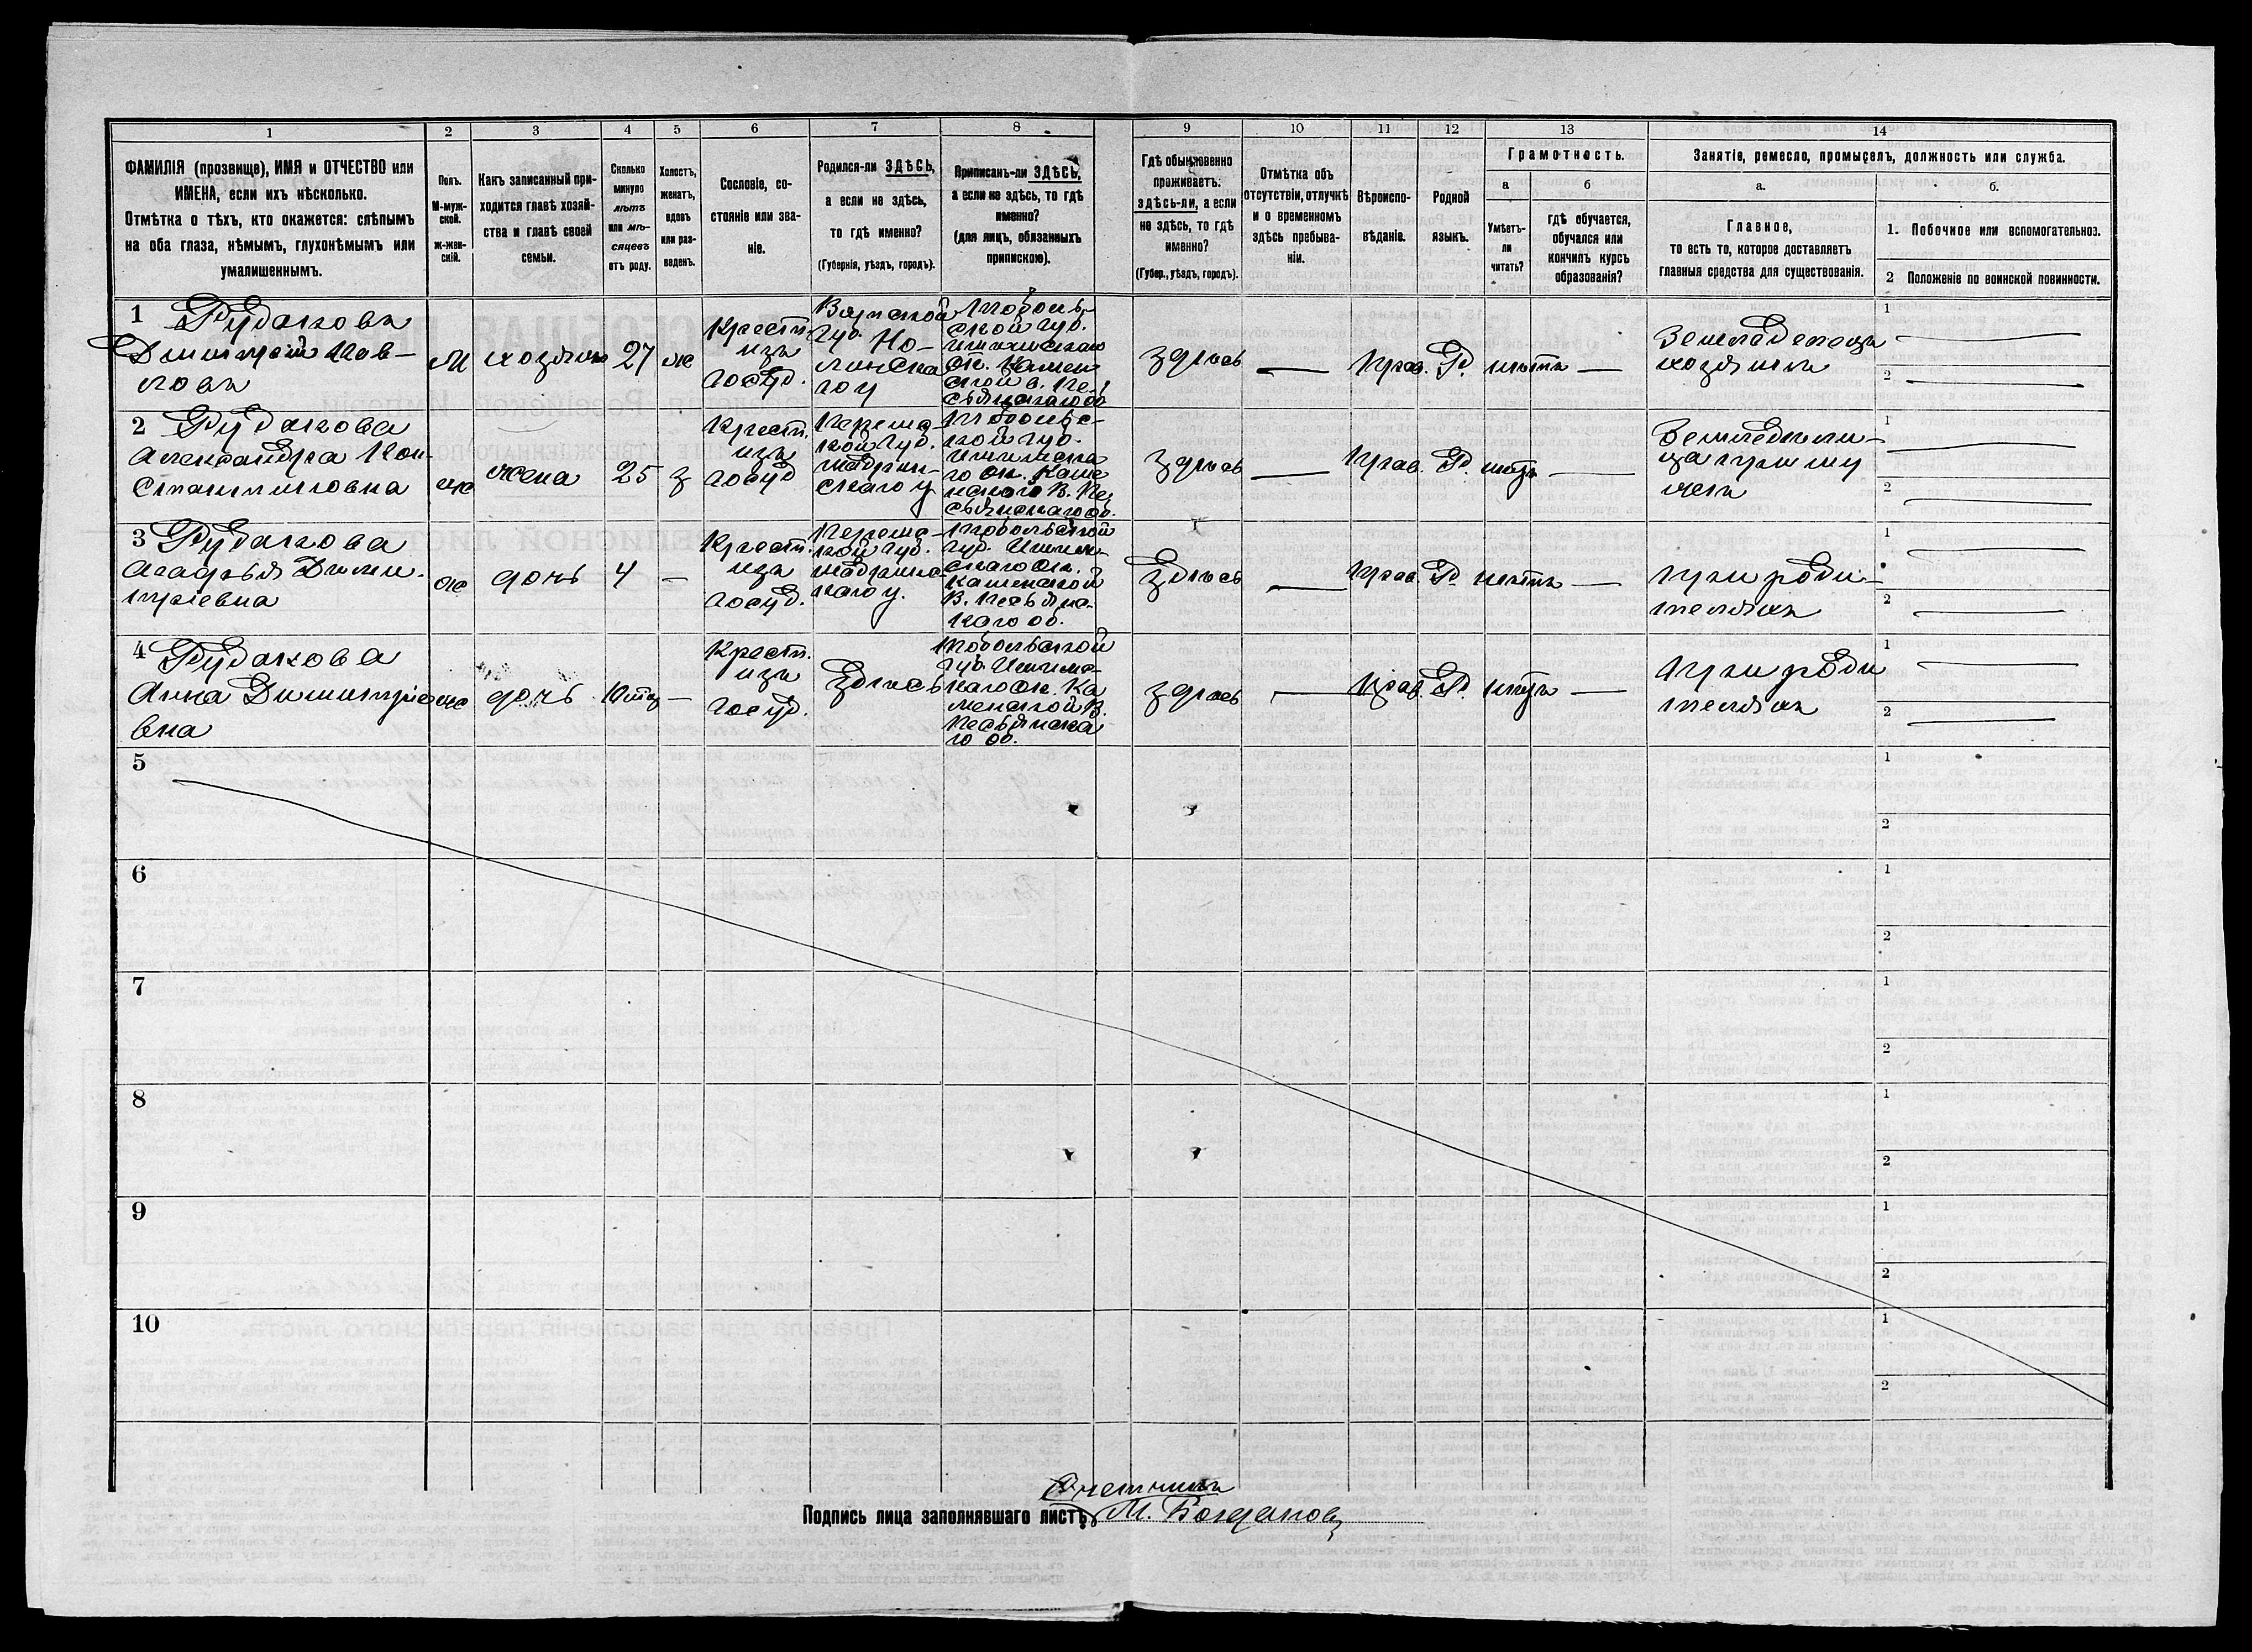 1 2 3 4 5 6 7 8 9 10 11 12 13 14
ФАМИЛІЯ (прозвище), ИМЯ и ОТЧЕСТВО или
ИМЕНА, если ихъ нѣсколько.
Отмѣтка о тѣхъ, кто окажется: слѣпымъ
на оба глаза, нѣмымъ, глухонѣмымъ или
умалишеннымъ.
Полъ.
М-муж-
ской.
ж-жен-
скій.
Какъ записанный при-
ходится главѣ хозяй-
ства и главѣ своей
семьи.
Сколько
минуло
лѣтъ
или мѣ-
сяцевъ
отъ роду.
Холостъ,
женатъ,
вдовъ
или раз-
веденъ.
Сословіе, со-
стояніе или зва-
ніе.
Родился-ли ЗДѢСЬ,
а если не здѣсь,
то гдѣ именно?
(Губернія, уѣздъ, городъ).
Приписанъ-ли ЗДѢСЬ,
а если не здѣсь, то гдѣ
именно?
(для лицъ, обязанныхъ
припискою).
Гдѣ обыкновенно
проживаетъ:
здѣсь-ли, а если
не здѣсь, то гдѣ
именно?
(Губер., уѣздъ, городъ).
Отмѣтка объ
отсутствіи, отлучкѣ
и о временномъ
здѣсь пребыва-
ніи.
Вѣроиспо-
вѣданіе.
Родной
языкъ.
Грамотность.
а
Умѣетъ-
ли
читать?
б
гдѣ обучается,
обучался или
кончилъ курсъ
образованія?
Занятіе, ремесло, промыселъ, должность или служба.
а.
Главное,
то есть то, которое доставляетъ
главныя средства для существованія.
б.
1. Побочное или вспомогательное.
2 Положеніе по воинской повинности.
1 Рудаковъ
Димитрій Пав-
ловъ
м
хозяинъ
27
ж
Крестн.
изъ
госуд.
Вятской
губ. Но-
линска
го у
Тоболь-
ской губ.
Ишимскаго
ок. Камен
ской в. Пе-
сьянскаго об
здѣсь
Прав.
Р.
нѣтъ
Земледѣлецъ
хозяинъ
1
2
2 Рудакова
Александра Кон-
стантиновна
ж
жена
25
з
Крестн.
изъ
госуд
Пермс-
кой губ.
Шадрин-
скаго у
Тобольс-
кой губ.
Ишимска
го ок. Каме
нской В. Пе
сьянскаго об.
здѣсь
Прав.
Р.
нѣтъ
Земледѣли-
ца при му
жѣ
1
2
3 Рудакова
Агафья Дими-
тріевна
ж
дочь
4
Крестн.
изъ
госуд.
Пермс-
кой губ.
Шадринс-
каго у.
Тобольской
губ. Ишим-
скаго ок.
Каменской
В. Песьянс-
каго об.
Здѣсь
Прав.
Р
нѣтъ
при роди-
теляхъ
1
2
4 Рудакова
Анна Димитріе
вна
ж
дочь
Крестн.
изъ
госуд.
Здѣсь
Тобольской
губ. Ишимс-
каго ок. Ка
менской В.
Песьянска
го об.
здѣсь
Прав.
Р.
нѣтъ
при роди
теляхъ
1
2
5
1
2
6
1
2
7
1
2
8
1
2
9
1
2
10
1
2
Счетчикъ
Подпись лица заполнявшаго листъ М. Богданов